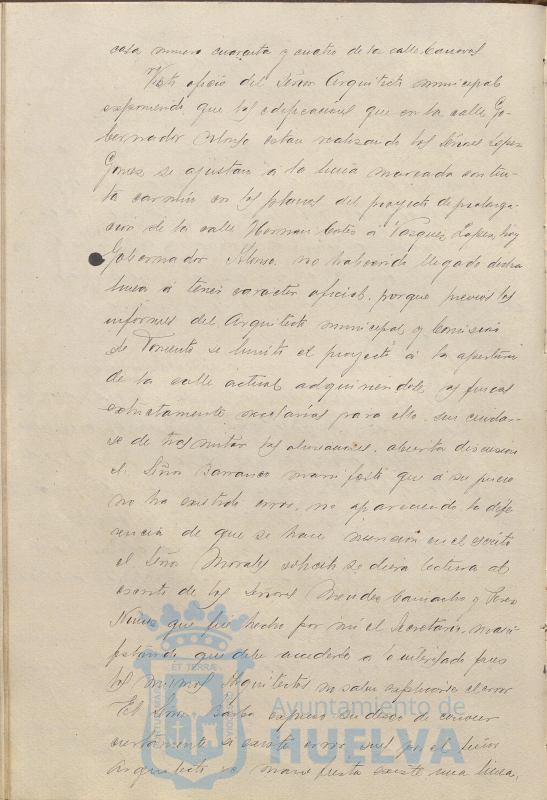 casa numero cuarenta y cuatro de la calle Canovas
Visto oficio del Señor Arquitecto municipal
exponiendo que las edificaciones que en la calle Go-
bernador Alonso estan realizando los Señores Lopez
Gomez se ajustan a la linea marcada con tin-
ta carmin en los planos del proyecto de prolonga-
cion de la calle Hernan Cortes a Vazquez Lopez, hoy
Gobernador Alonso, no habiendo llegado dicha
linea á tener caracter oficial, porque previos los
informes del Arquitecto municipal y Comision
de Fomento se limitó el proyecto á la apertura
de la calle actual adquiriendole las fincas
extrictamente necesarias para ello, sin cuidar-
se de tramitar las alineaciones, abierta discusion
el Señor Barranco manifestó que á su juicio
no ha existido error, no apareciendo la dife-
rencia de que se hace mencion en el escrito
el Señor Morales solicitó se diera lectura al
escrito de los Señores Mendez Camacho y Perez
Nuñez que fué hecho por mi el Secretario, mani-
festando que debe accederse a lo interesado pues
los mismos Arquitectos no saben explicarse el error
El Señor Barba expresó su deseo de conocer
ciertamente si existe error pues por el Señor
Arquitecto se manifiesta existe una linea,
ET TERRAE
Ayuntamiento de
HUELVA